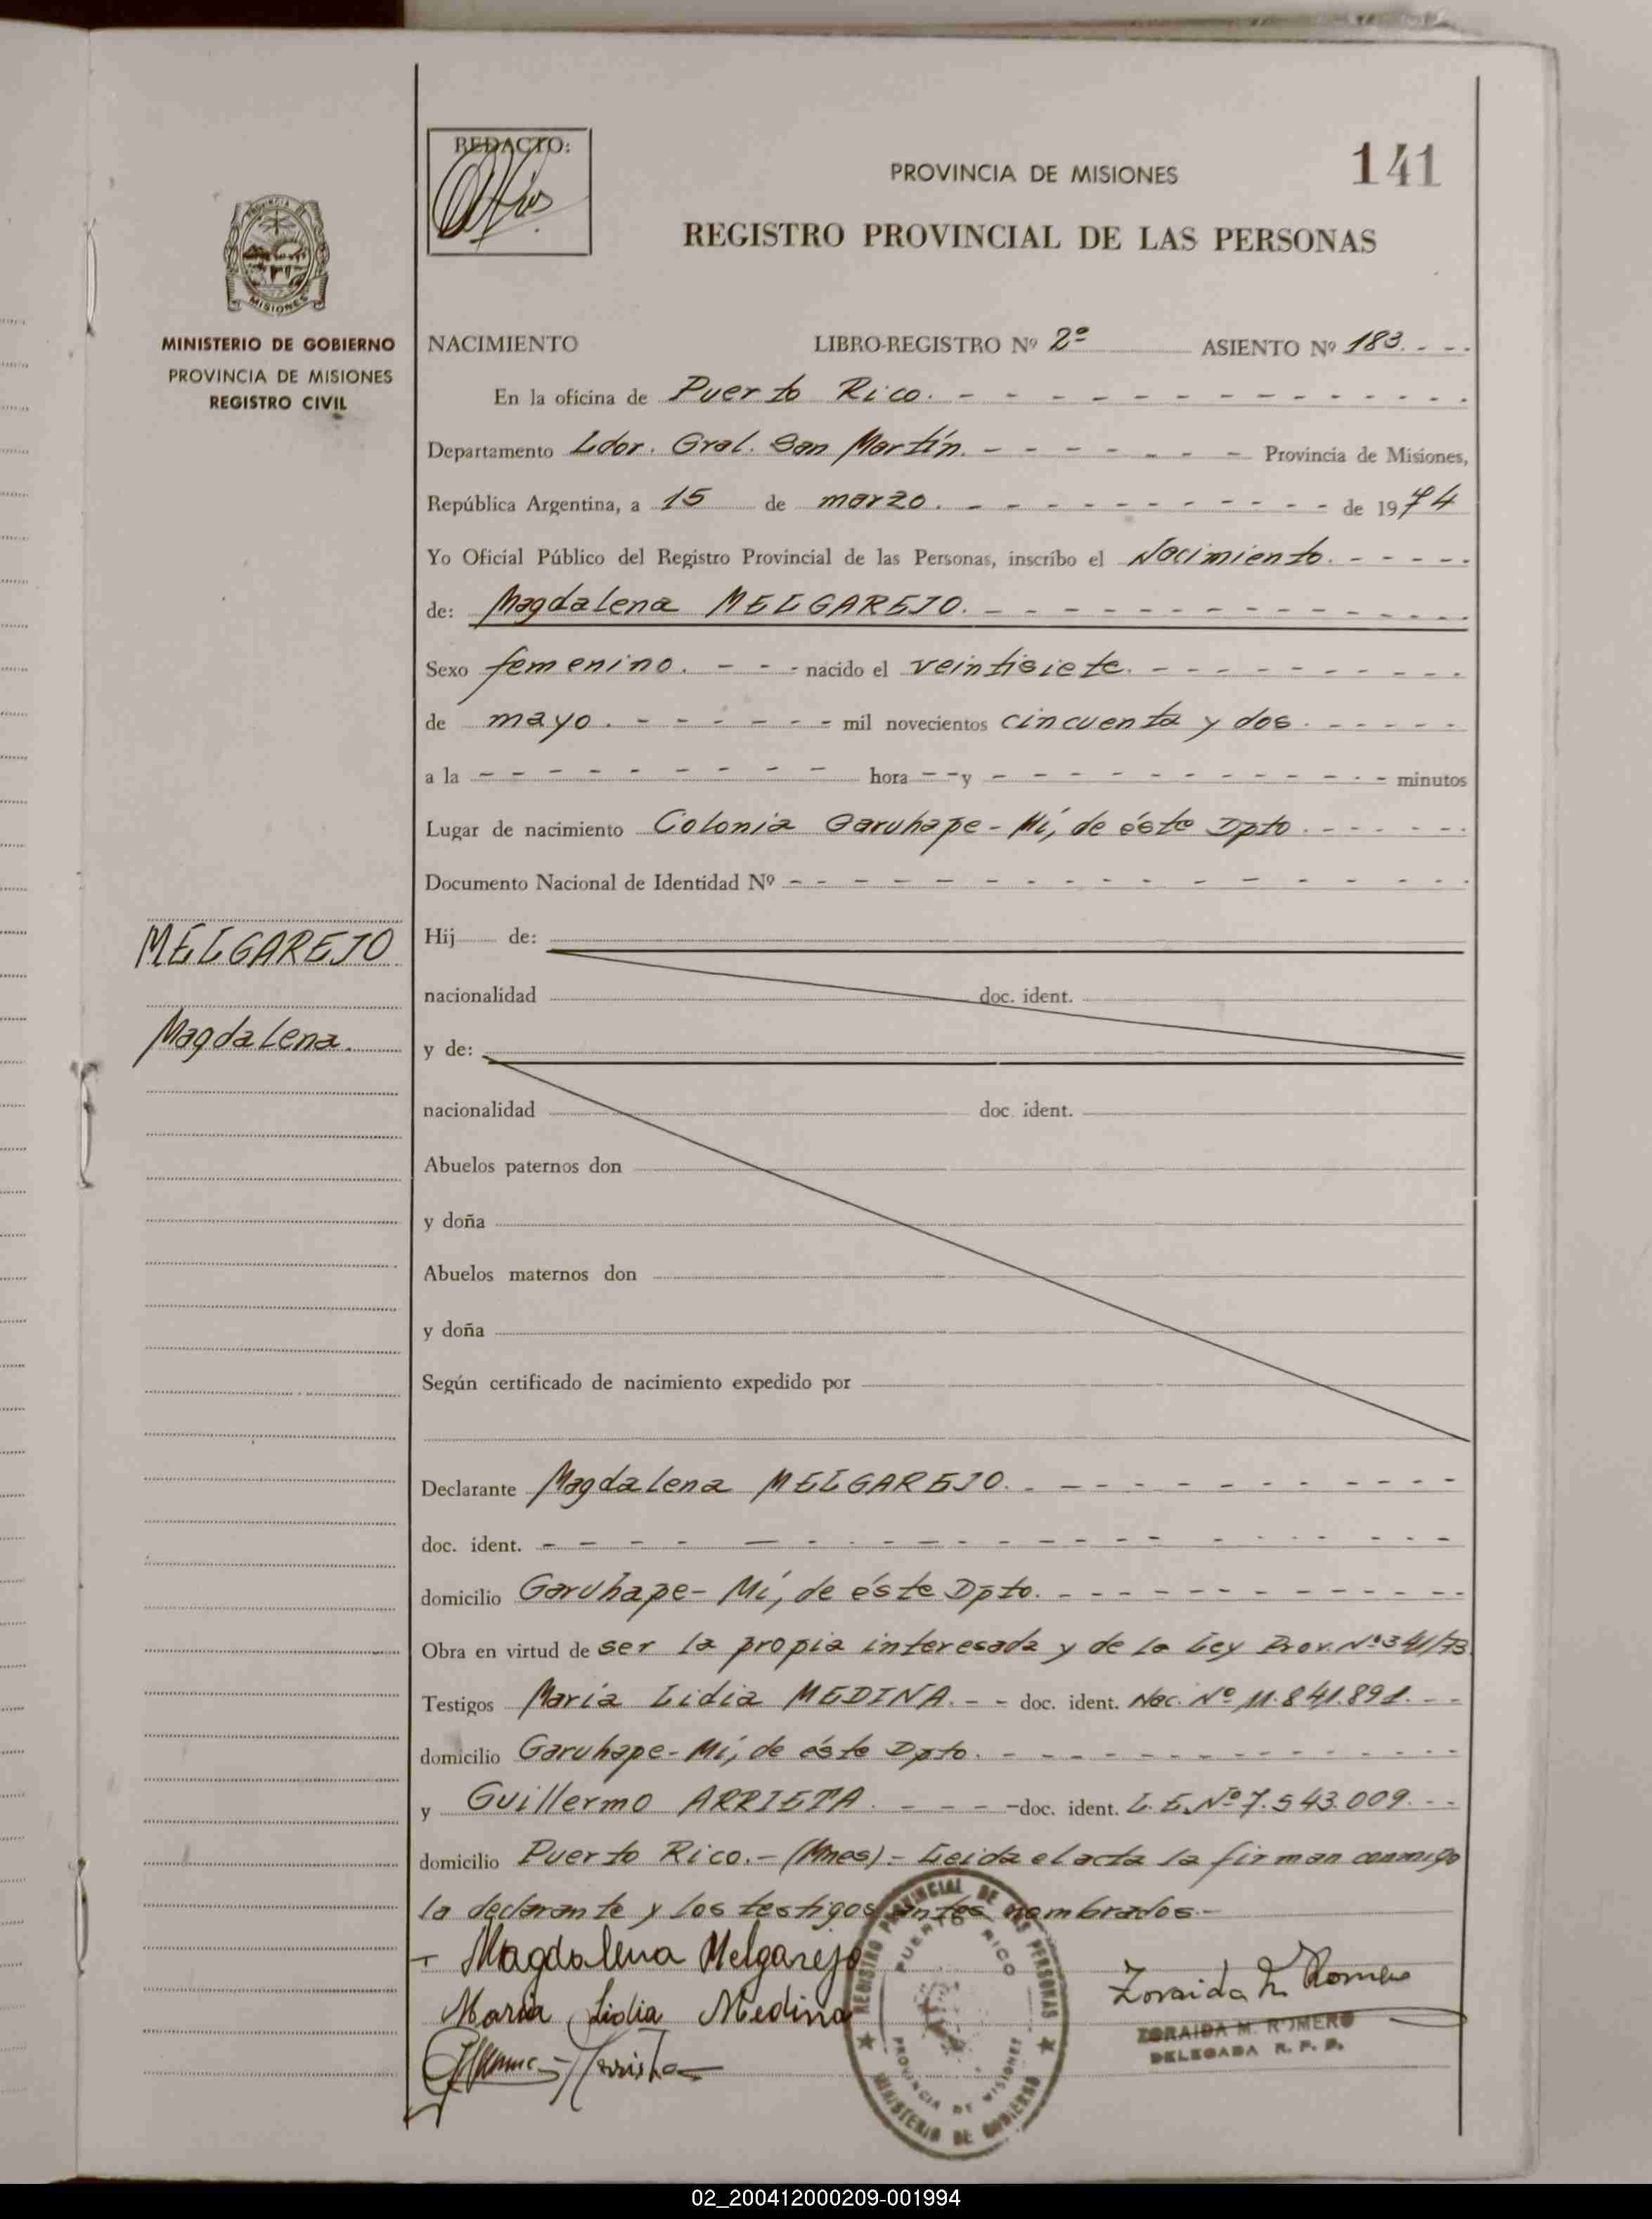 REDACTO:
PROVINCIA DE MISIONES
141
REGISTRO PROVINCIAL DE LAS PERSONAS
PROVINCIA DE
MISIONES
MINISTERIO DE GOBIERNO
PROVINCIA DE MISIONES
REGISTRO CIVIL
NACIMIENTO LIBRO-REGISTRO Nº 2º ASIENTO Nº 183. - - -
En la oficina de Puerto Rico. - - - - - - - - - - - -
Departamento Ldor. Gral. San Martín. - - - - - - - Provincia de Misiones,
República Argentina, a 15 de marzo. - - - - - - - - - - de 1974
Yo Oficial Público del Registro Provincial de las Personas, inscribo el Nacimiento. - - - - -
de: Magdalena MELGAREJO. - - - - - - - - - - - -
Sexo femenino. - - - nacido el veintisiete. - - - - - - - -
de mayo. - - - - - - - mil novecientos cincuenta y dos. - - - - -
a la - - - - - - - - - hora - - y - - - - - - - - - - - minutos
Lugar de nacimiento Colonia Garuhape - Mí, de éste Dpto. - - - - -
Documento Nacional de Identidad Nº - - - - - - - - - - - - - - -
MELGAREJO
Magdalena.
Hij de:
nacionalidad doc. ident.
y de:
nacionalidad doc. ident.
Abuelos paternos don
y doña
Abuelos maternos don
y doña
Según certificado de nacimiento expedido por
Declarante Magdalena MELGAREJO. - - - - - - - - - - -
doc. ident. - - - - - - - - - - - - - - - - - -
domicilio Garuhape - Mí, de éste Dpto. - - - - - - - - - - -
Obra en virtud de ser la propia interesada y de la Ley Prov. Nº 341/73
Testigos María Lidia MEDINA. - - doc. ident. Nac. Nº 11.841.891. - -
domicilio Garuhape - Mí, de éste Dpto. - - - - - - - - - - - -
y Guillermo ARRIETA. - - - - doc. ident. L.E. Nº 7.543.009. - -
domicilio Puerto Rico. - (Mnes) - Leida el acta la firman conmigo
la declarante y los testigos antes nombrados. -
Magdalena Melgarejo
María Lidia Medina
Zoraida M. Romero
ZORAIDA M. ROMERO
DELEGADA R. P. P.
REGISTRO PROVINCIAL DE LAS PERSONAS
PUERTO RICO
PROVINCIA DE MISIONES
MINISTERIO DE GOBIERNO
02_200412000209-001994